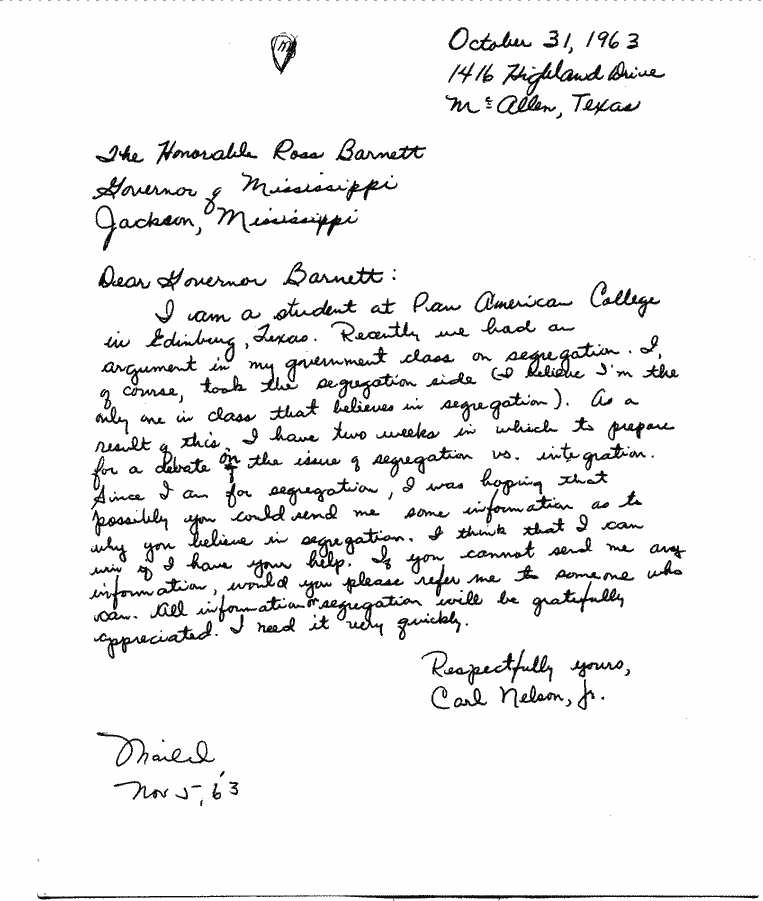 M
October 31, 1963
1416 Highland Drive
McAllen, Texas
The Honorable Ross Barnett
Governor of Mississippi
Jackson, Mississippi
Dear Governor Barnett:
I am a student at Pan American College
in Edinburg, Texas. Recently we had an
argument in my government class on segregation. I,
of course, took the segregation side (I believe I'm the
only one in class that believes in segregation). As a
result of this, I have two weeks in which to prepare
for a debate on the issue of segregation vs. integration.
Since I am for segregation, I was hoping that
possibly you could send me some information as to
why you believe in segregation. I think that I can
win if I have your help. If you cannot send me any
information, would you please refer me to someone who
can. All information on segregation will be gratefully
appreciated. I need it very quickly.
Respectfully yours,
Carl Nelson, Jr.
Mailed
Nov 5, '63